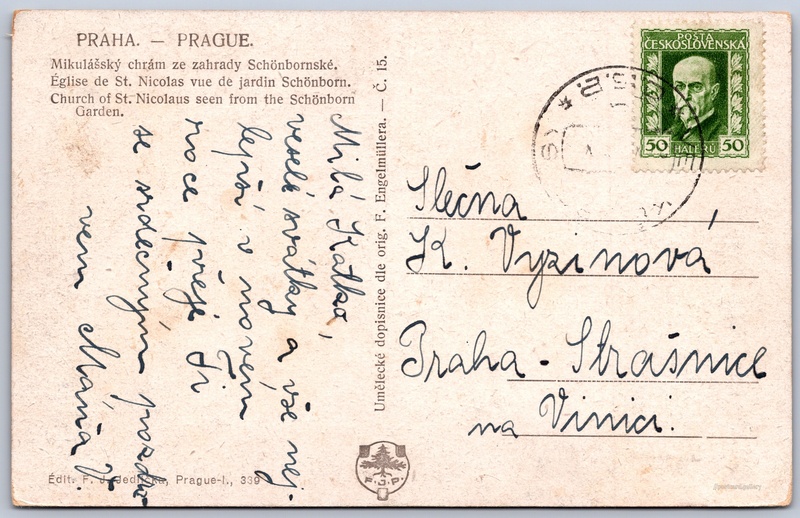 PRAHA. — PRAGUE.
Mikulášský chrám ze zahrady Schönbornské.
Église de St. Nicolas vue de jardin Schönborn.
Church of St. Nicolaus seen from the Schönborn
Garden.
Milá Katko,
veselé svátky a vše nej-
lepší v novém
roce přeje Ti
se srdečným pozdra-
vem Máňa V.
Édit. F. J. Jedlička, Prague-I., 339
Umělecké dopisnice dle orig. F. Engelmüllera. — Č. 15.
F. J. P.
POŠTA
ČESKOSLOVENSKÁ
50 HALÉŘŮ 50
Slečna
K. Vyzinová,
Praha - Strašnice
na Vinici.